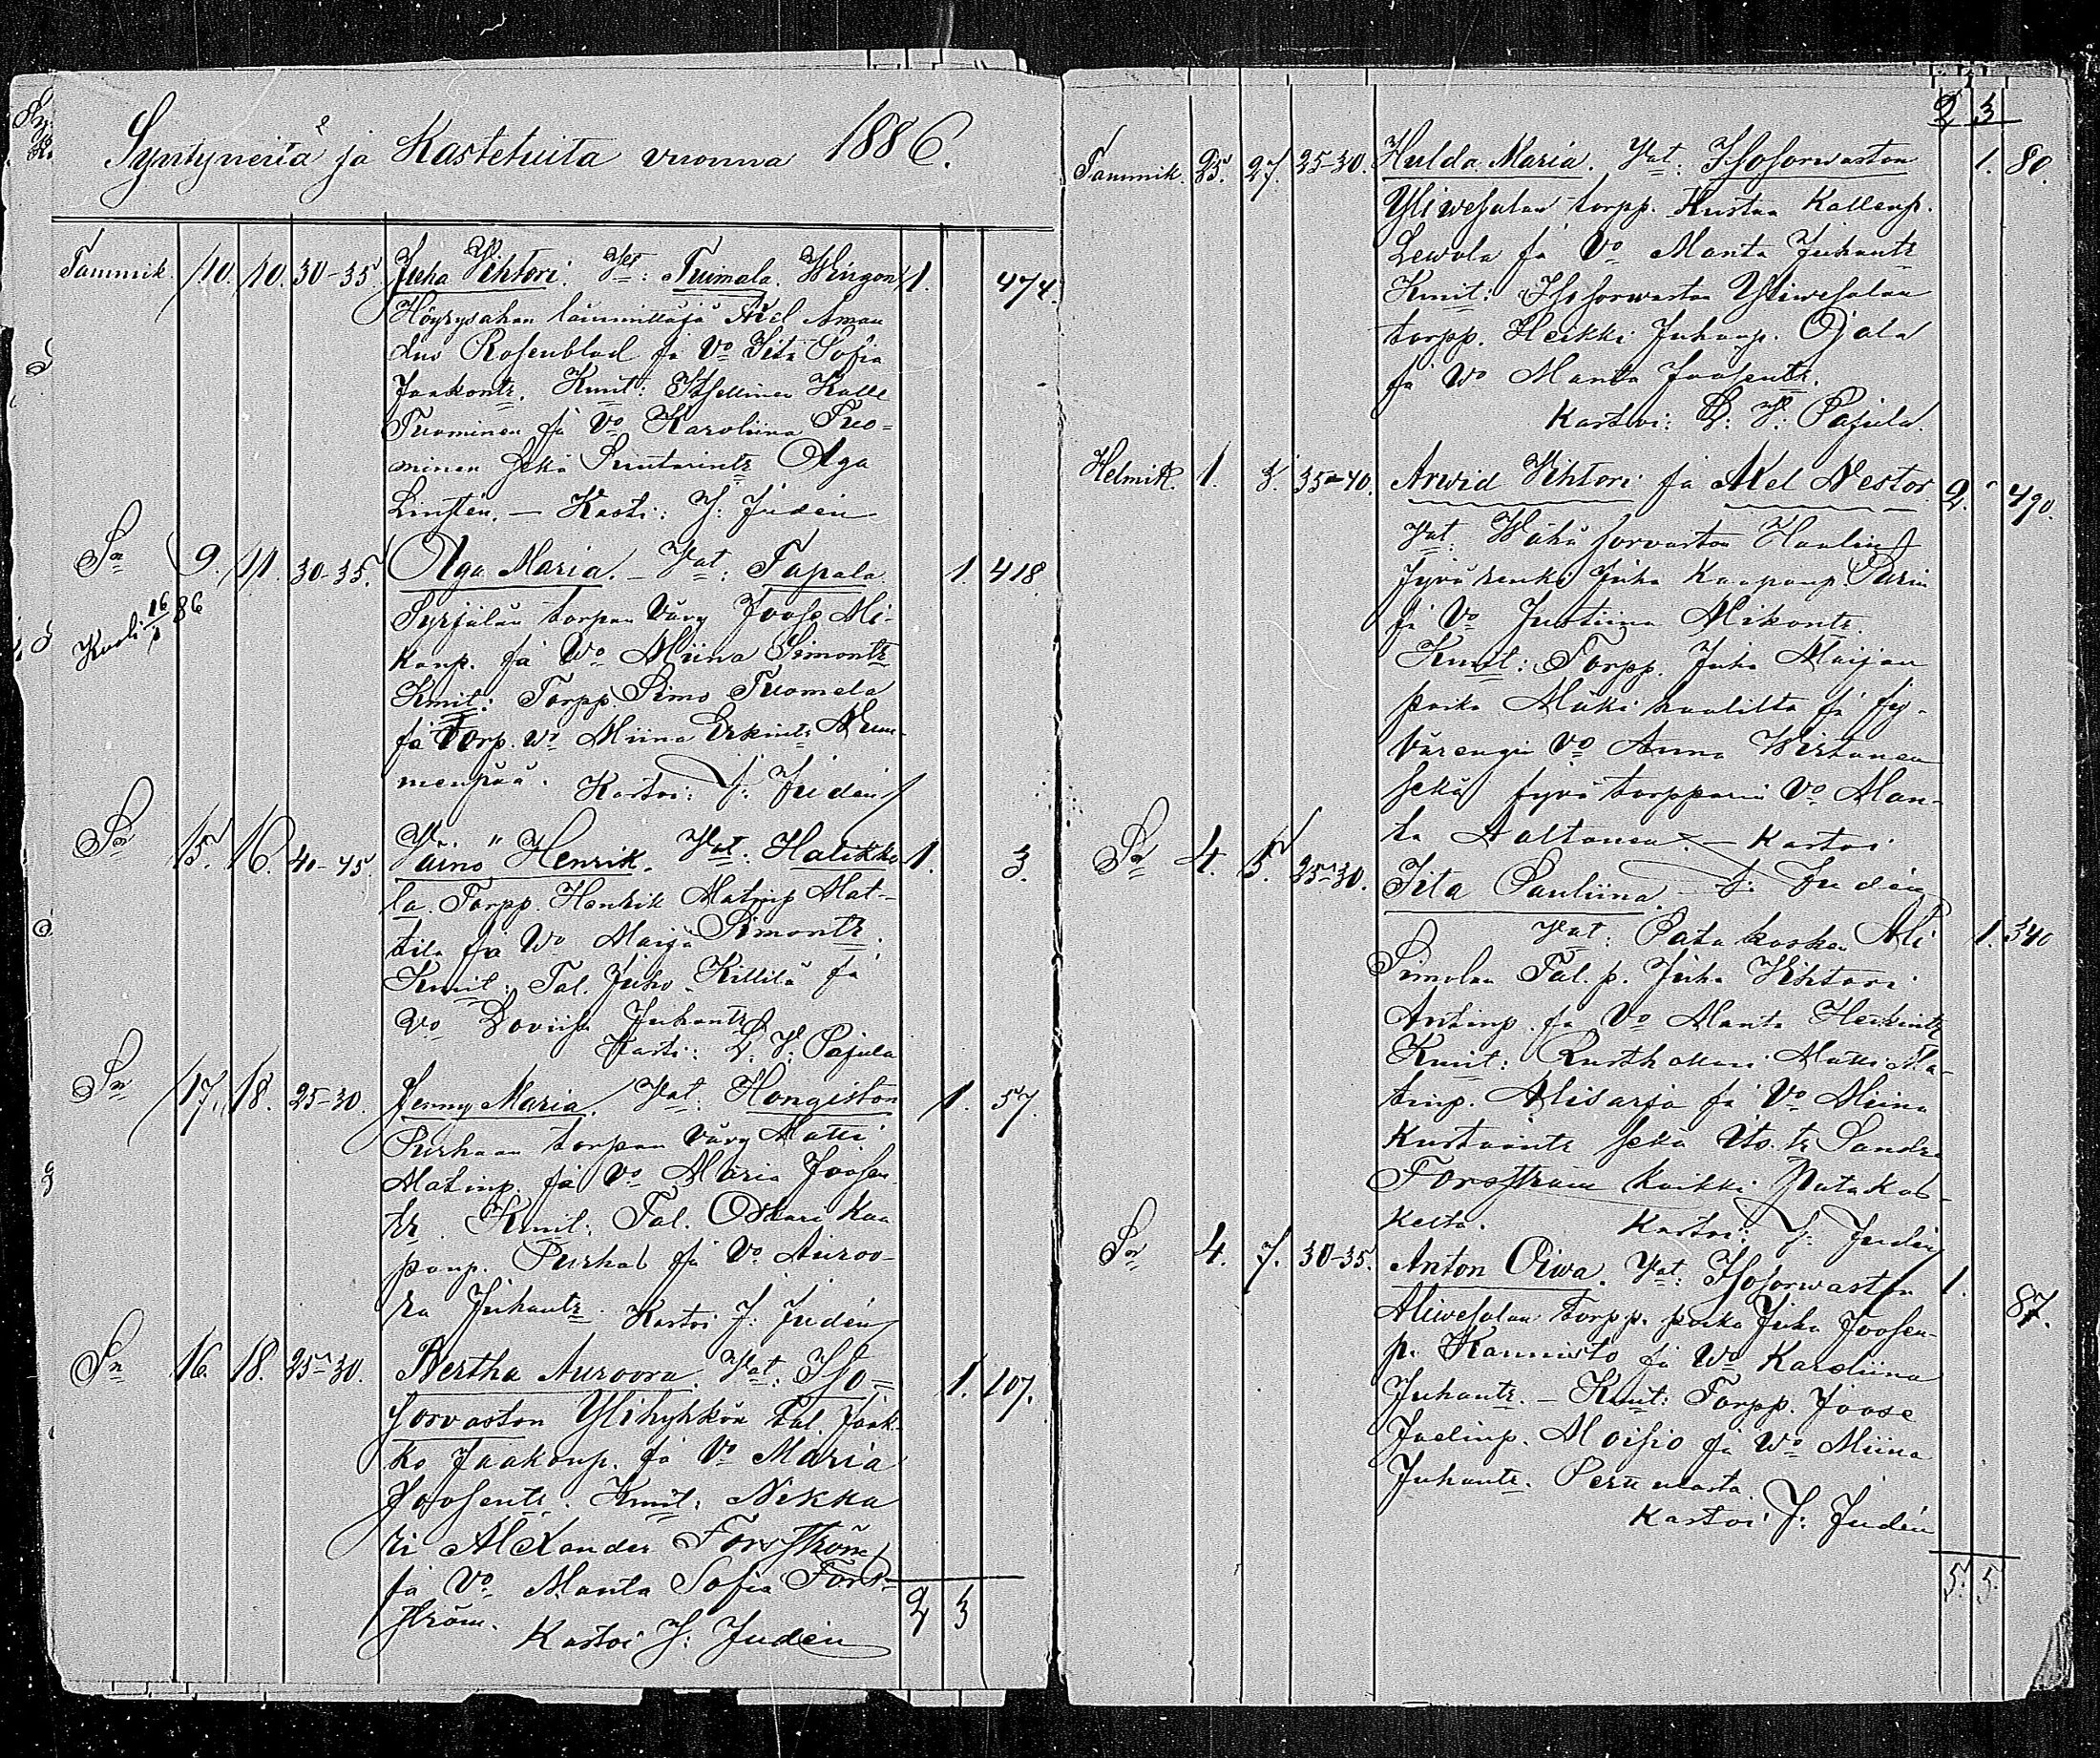 Syntyneitä ja Kastetuita vuonna 1886.
Tammik. 10. 10. 30-35 Juha Vihtori. Vat: Tuimala. Wingon 1. 474.
Höyrysahan lämmittäjä Axel Aman
dus Rosenblad ja Vo Iita Sofia
Jaakontr. Kmit: Itsellinen Kalle
Tuominen ja Vo Karoliina Tuo=
minen sekä Suutarintr Olga
Linstén. — Kasti: J: Judén
Sn 9. 11. 30-35. Olga Maria. — Vat: Tapala 1. 418
Kuoli 16/1 86
Syrjälän torpan Vävy Joose Mi-
konp. ja Wo Miina Simontr
Kmit: Torpp. Simo Tuomela
ja Torp. Wo Miina Erkintr Num-
menpää. Kastoi: J: Judén
Sn 15. 16. 40-45. Väinö Henrik. Vat: Halikko 1. 3.
la. Torpp. Henrik Matinp Mat-
tila ja Wo Maija Simontr.
Kmit: Tal. Juho Killilä ja
Vo Loviisa Juhantr
Kasti: D. V: Pajula
Sn 17. 18. 25-30. Jenny Maria. Vat: Hongiston 1. 57.
Purhaan torpan Vävy Matti
Matinp. ja Vo Maria Joosen
tr. Kmit: Tal. Oskari Kaa
panp. Purhas ja Vo Auroo-
ra Juhantr. Kastoi J: Judén
Sn 16. 18. 25-30. Bertha Auroora. Vat: Iso= 1. 107.
sorvaston Ylikyhkön Tal. Jaak-
ko Jaakonp. ja Vo Maria
Joosentr. Kmit: Nikka
ri Alexander Forsström
ja Vo Manta Sofia Fors-
ström. 2 3
Kastoi J: Judén
2 3
Tammik. 25. 27. 25-30. Hulda Maria. Vat: Isosorwaston 1. 80.
Yliwesalan torpp. Kustaa Kallenp.
Lewola ja Vo Manta Juhantr
Kmit: Isosorwaston Yliwesalan
torpp. Heikki Juhanp. Ojala
ja Wo Manta Joosentr.
Kastoi: D: V: Pajula.
Helmik. 1. 3. 35-40. Arwid Vihtori ja Axel Nestor 2. 490.
Vat: Wähä sorvaston Haulin
jyvä renki Juha Kaapanp.
ja Vo Justiina Mikontr.
Kmit: Torpp. Juha Maijan
poika Mäki haalilta ja jy-
värengin Vo Anna Wirtanen
sekä jyvä torpparin Vo Man-
ta Aaltonen. — Kastoi
J: Judén
Sn 4. 5. 25-30. Iita Pauliina.
Vat: Patakosken Ali 1. 340
Simolan Tal. p. Juha Vihtori
Antinp. ja Vo Manta Heikintr
Kmit: Rusthollari Matti Ma-
tinp. Alisarja ja Vo Miina
Kustaantr sekä Ito. tr Sandra
Forsström kaikki Patakos-
kelta. Kastoi: J: Judén
Sn 4. 7. 30-35. Anton Oiwa. Vat: Isosorwaston 1. 87.
Aliwesalan torpp. poika Juha Joosen-
p. Kannisto ja Wo Karoliina
Juhantr. — Kmit: Torpp. Joose
Juelinp. Moisio ja Wo Miina
Juhantr.
Kastoi J: Judén
5. 5.